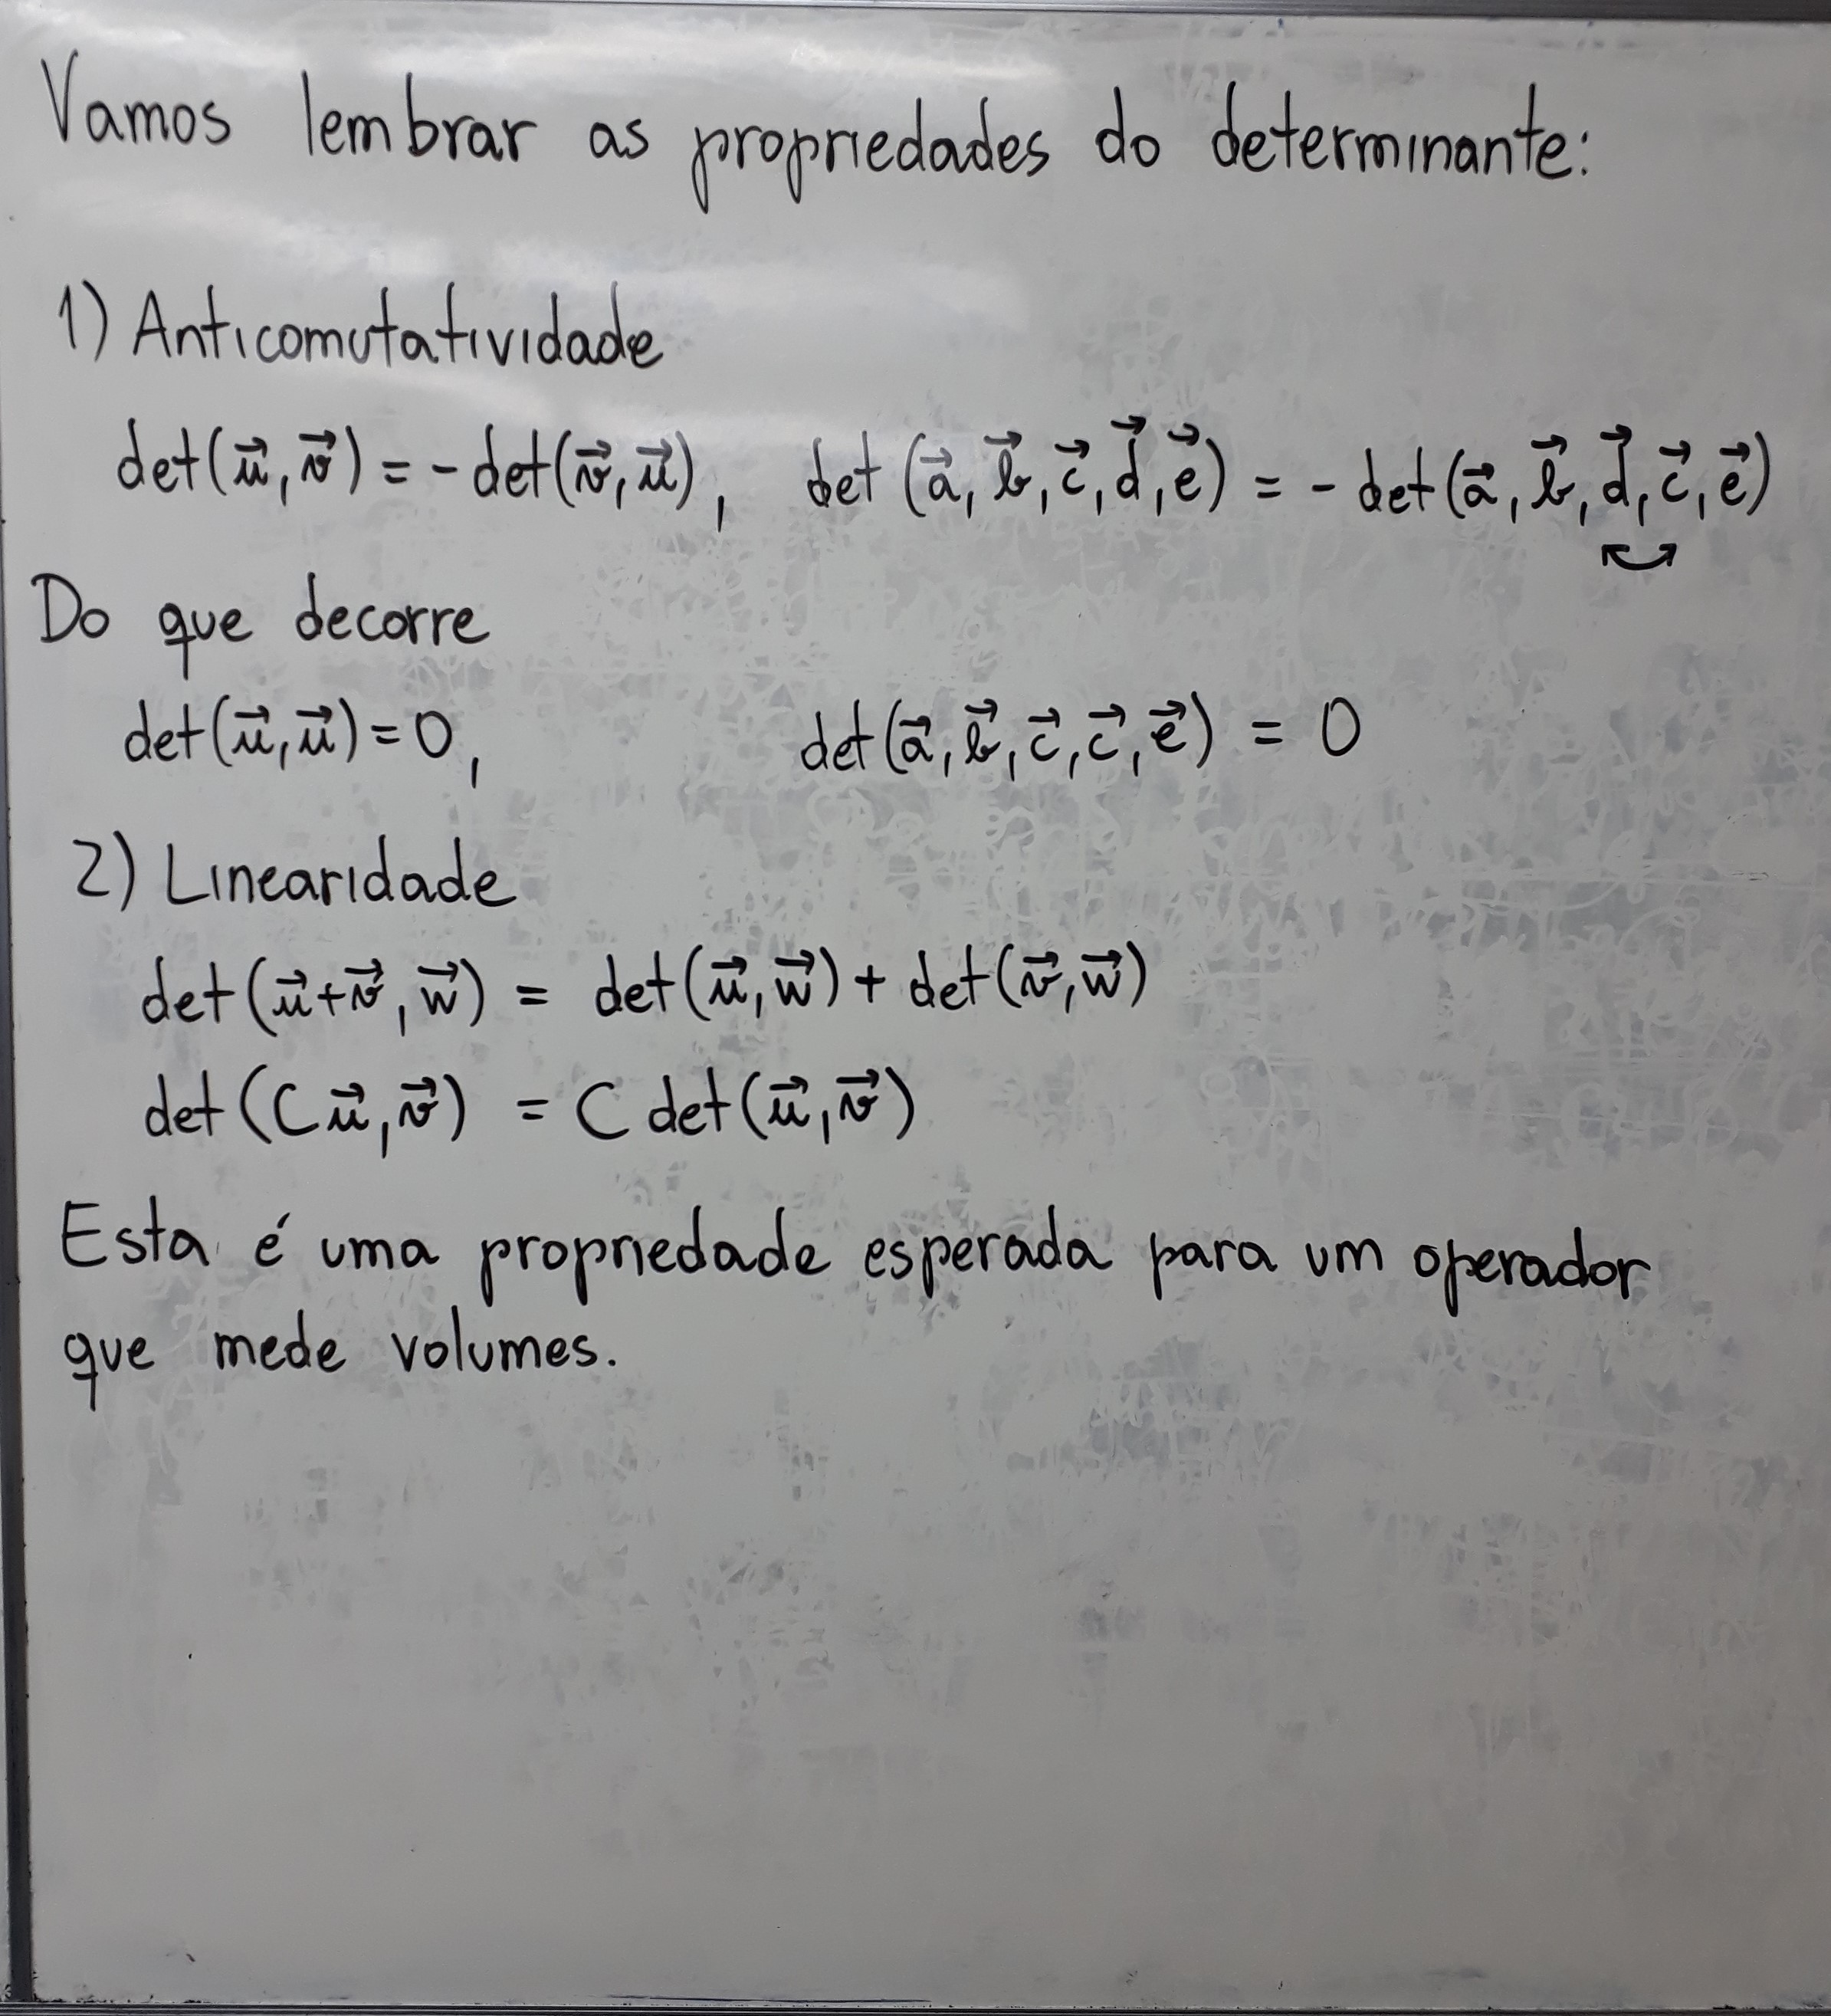 Vamos lembrar as propriedades do determinante:
1) Anticomutatividade
det(u⃗, v⃗) = - det(v⃗, u⃗), det (a⃗, b⃗, c⃗, d⃗, e⃗) = - det(a⃗, b⃗, d⃗, c⃗, e⃗)
Do que decorre
det(u⃗, u⃗) = 0, det(a⃗, b⃗, c⃗, c⃗, e⃗) = 0
2) Linearidade
det(u⃗+v⃗, w⃗) = det(u⃗, w⃗) + det(v⃗, w⃗)
det(C u⃗, v⃗) = C det(u⃗, v⃗)
Esta é uma propriedade esperada para um operador
que mede volumes.